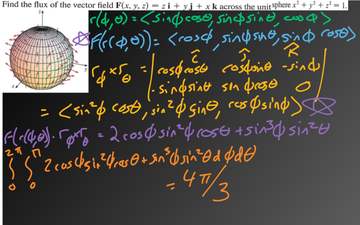 Find the flux of the vector field F(x, y, z) = z i + y j + x k across the unit sphere x² + y² + z² = 1.
r(ϕ,θ) = <sinϕcosθ, sinϕsinθ, cosϕ>
F(r(ϕ,θ)) = <cosϕ, sinϕsinθ, sinϕcosθ>
î ĵ k̂
r_ϕ × r_θ = | cosϕcosθ cosϕsinθ -sinϕ |
| -sinϕsinθ sinϕcosθ 0 |
= <sin²ϕ cosθ, sin²ϕ sinθ, cosϕsinϕ>
F(r(ϕ,θ)) · r_ϕ × r_θ = 2cosϕsin²ϕcosθ + sin³ϕsin²θ
∫₀^2π ∫₀^π 2cosϕsin²ϕcosθ + sin³ϕsin²θ dϕdθ
= 4π/3